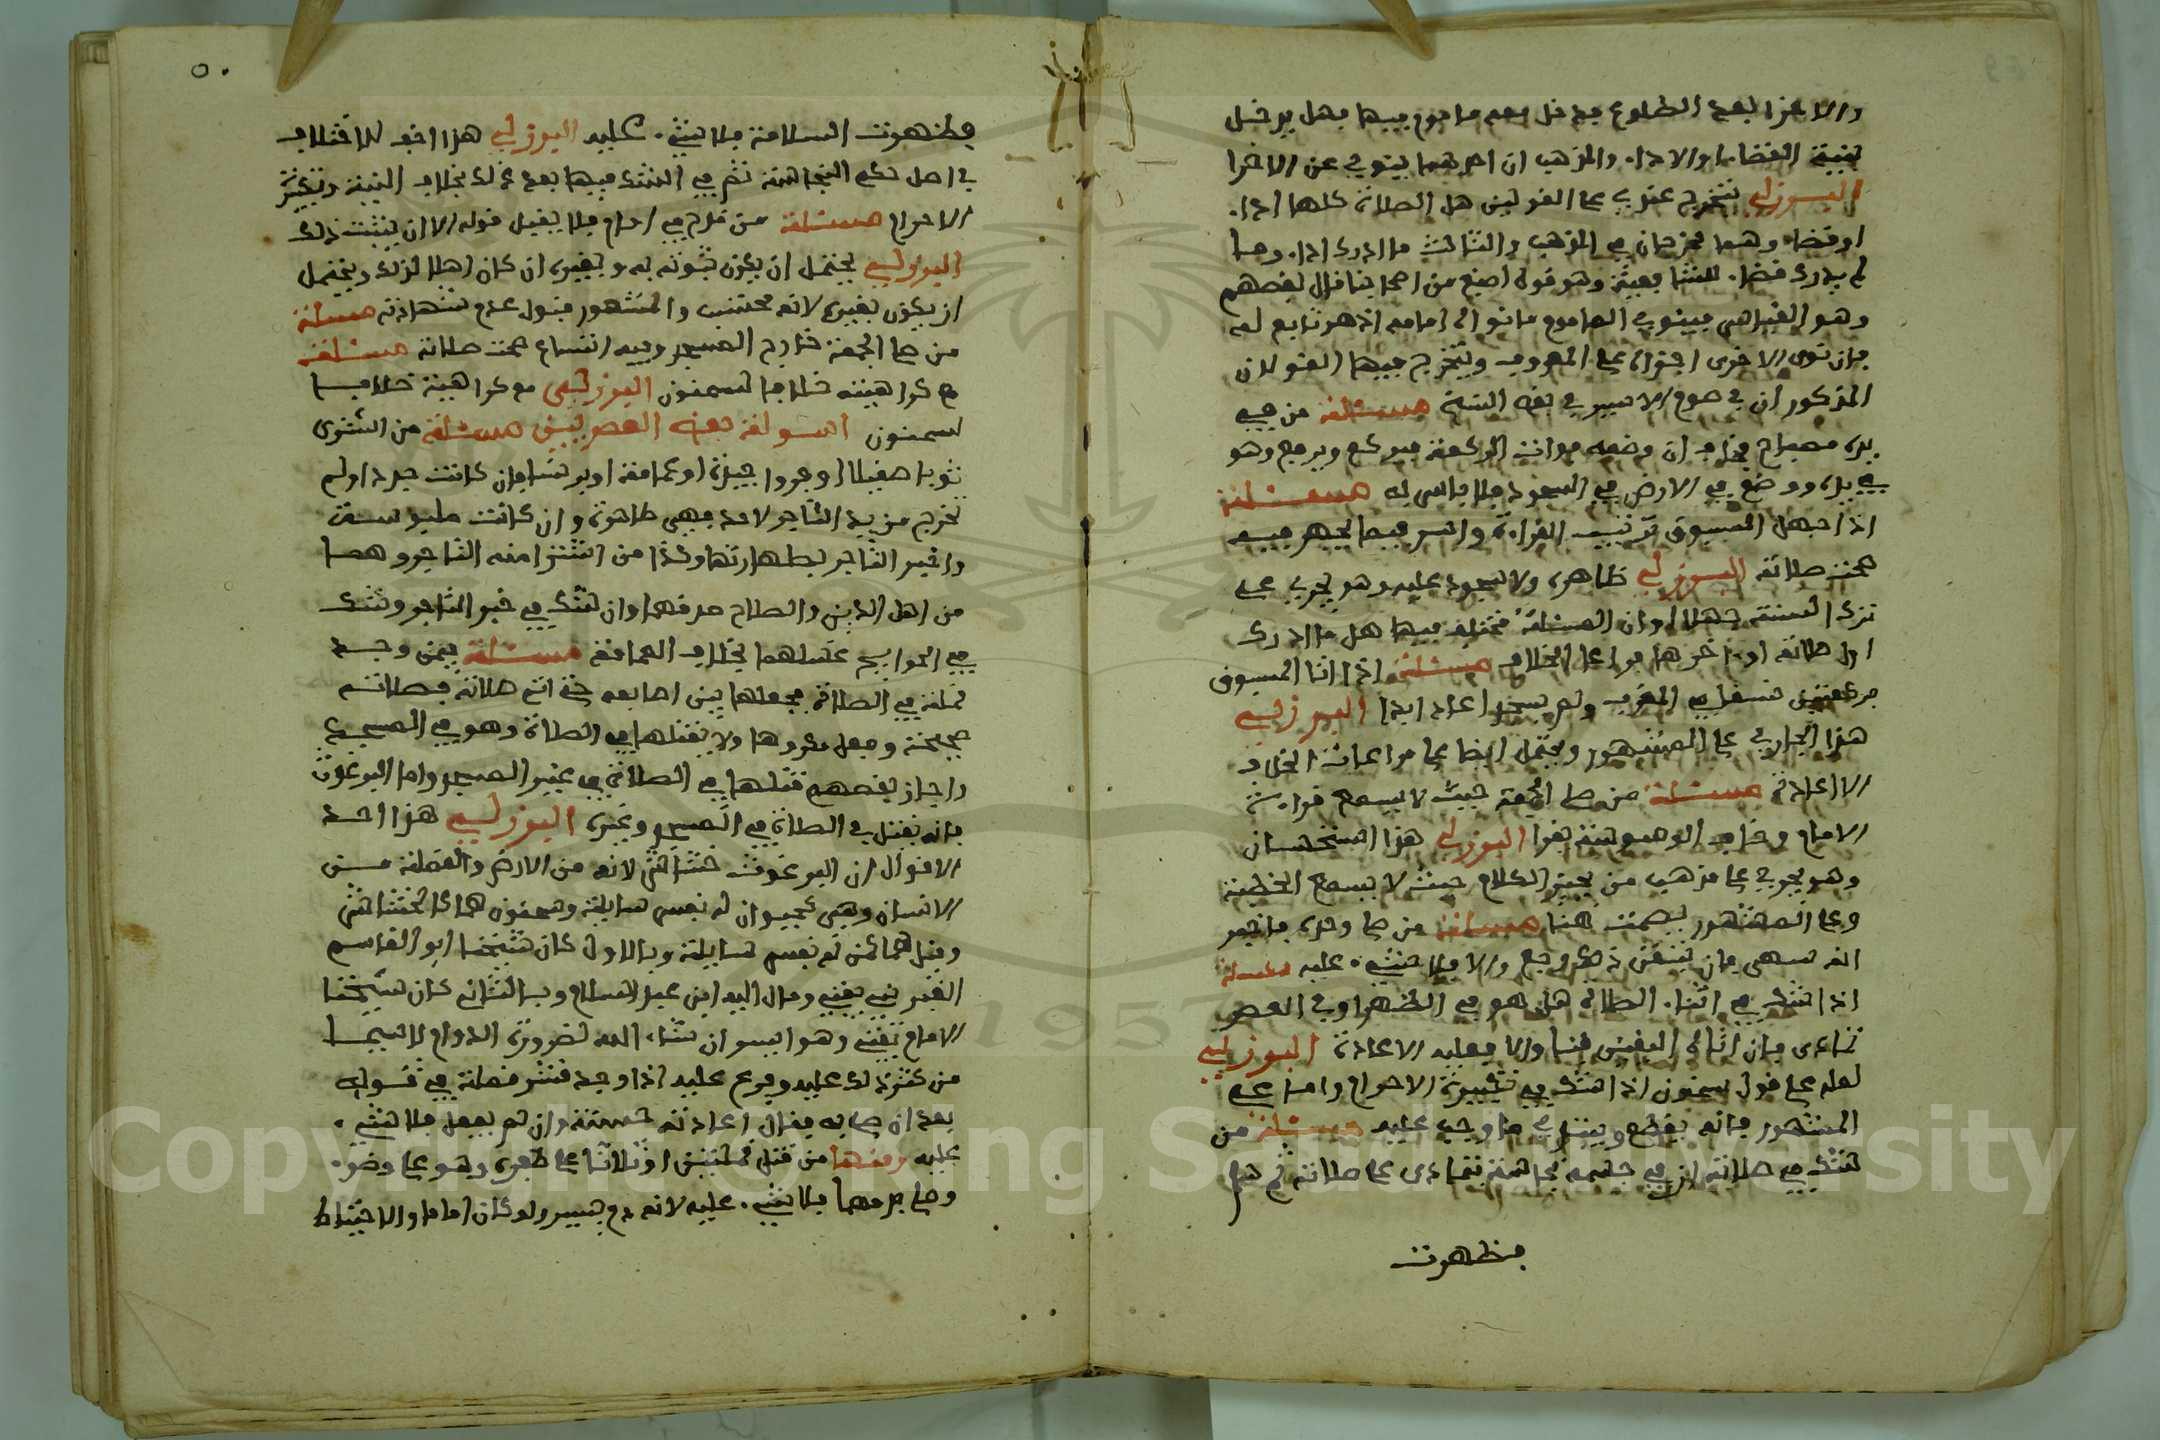 والا غزا بعد الطلوع فدخل معه مأموم فيها فهل يدخل
بنية القضاء او الاداء والمذهب ان احدهما ينوي عن الاخرا
البرزلي تتخرج عندي على القولين هل الصلاة كلها اداء
او قضاء وهما مخرجان في المذهب والثالث ما ادرك اداء وما
لم يدرك قضاء للشافعية وهو قول اصبغ من اصحابنا قال بعضهم
وهو القياس فينوي المأموم ما نواه امامه اذ هو تابع له
فان نوى الاخرى اجزاه على المعروف ويتخرج فيها القولان
المذكوران في صوم الاسير في بعض السنة مسئلة من في
يده مصباح يخاف ان وضعه فواته الركعة فيركع ويرفع وهو
في يده ووضع في الارض في السجود فلا باس به مسئلة
اذا جهل المسبوق ترتيب القراءة واسر فيما يجهر فيه
صحت صلاته البرزلي ظاهره ولا سجود عليه وهو يجري على
ترك السنة جهلا او ان المسئلة مختلف فيها هل ما ادرك
اول صلاته او اخرها فراعا الخلاف مسئلة اذا اتا المسبوق
بركعتين نسقا في المغرب ولم يسجد اعاد ابدا البرزلي
هذا الجاري على المشهور ويحتمل ايضا على مراعاة الخلاف
الا اعادة مسئلة من صلى الجمعة حيث لا يسمع قراءة
الامام وخاف الوسوسة فقرا البرزلي هذا استحسان
وهو يجري على مذهب من يجيز الكلام حيث لا يسمع الخطبة
وعلى المشهور يصمت هنا مسئلة من صلى وحده فاخبر
انه سهى فان تيقن ذكر رجع والا فلا شيء عليه مسئلة
اذا شك في اثناء الصلاة هل هو في الظهر او في العصر
تمادى فان اتاه اليقين فيها والا فعليه الاعادة البرزلي
لعله على قول سحنون اذا شك في تكبيرة الاحرام واما على
المشهور فانه يقطع ويبتدي ما وجب عليه مسئلة من
شك في صلاته ان في جسمه نجاسة تمادى على صلاته ثم
فظهرت
٥٠
فظهرت السلامة فلا شيء عليه البرزلي هذا اخف للاختلاف
في اصل حكم النجاسة ثم في الشك فيها بعد ذلك بخلاف النية وتكبيرة
الاحرام مسئلة من قدح في امام فلا يقبل قوله الا ان يثبت ذلك
البرزلي يحتمل ان يكون ثبوته به وبغيره ان كان اهلا لذلك ويحتمل
ان يكون بغيره لانه محتسب والمشهور قبول عدم شهادته مسئلة
من صلى الجمعة خارج المسجد وفيه اتساع صحت صلاته مسئلة
مع كراهيته خلافا لسحنون البرزلي مع كراهية خلافا
لسحنون اسولة بعض المصريين مسئلة من اشترى
ثوبا صقيلا او فروا جبة او عمامة او برنسا فان كانت جددا ولم
تخرج من يد التاجر لاحد فهي طاهرة وان كانت ملبوسة
واخبر التاجر بطهارتها وكذا من اشتراها منه التاجر وهما
من اهل الدين والصلاح صدقهما وان شك في خبر التاجر وشك
في الحوايج غسلهما بخلاف العمامة مسئلة فيمن وجد
قملة في الصلاة فجعلها بين اصابعه حتى اتم صلاته فصلاته
صحيحة وفعل مكروها ولا يقتلها في الصلاة وهو في المسجد
واجاز بعضهم قتلها في الصلاة في غير المسجد واما البرغوث
فانه يقتل في الصلاة في المسجد وغيره البرزلي هذا احد
الاقوال ان البرغوث خشاش لانه من الارض والقملة من
الانسان وهي كحيوان له نفس سايلة وسحنون هما كالخشاش
وقيل هما كمن له نفس سايلة وبالاول كان شيخنا ابو القاسم
الغبريني يفتي ومال اليه ابن عبد السلام وبالثاني كان شيخنا
الامام يفتي وهو ايسر ان شاء الله لضرورة الدوام لا سيما
من كثر ذلك عليه ووقع عليه اذا وجد قشر قملة في ثوبه
بعد ان صلى به فقال اعادته حسنة وان لم يفعل فلا شيء
عليه ومنها من قتل قملتين او ثلاثا على ظفره وهو على وضوء
وصلى بدمهما فلا شيء عليه لانه دم يسير ولو كان اماما والاحتياط
Copyright © King Saud University
1957